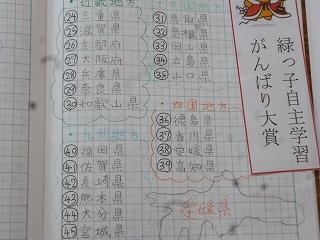 近畿地方
㉔三重県
㉕滋賀県
㉖京都府
㉗大阪府
㉘兵庫県
㉙奈良県
㉚和歌山県
㉛鳥取県
㉜島根県
㉝岡山県
㉞広島県
㉟山口県
四国地方
㊱徳島県
㊲香川県
㊳愛媛県
㊴高知県
九州地方
㊵福岡県
㊶佐賀県
㊷長崎県
㊸熊本県
㊹大分県
㊺宮城県
愛媛県
緑っ子自主学習
がんばり大賞